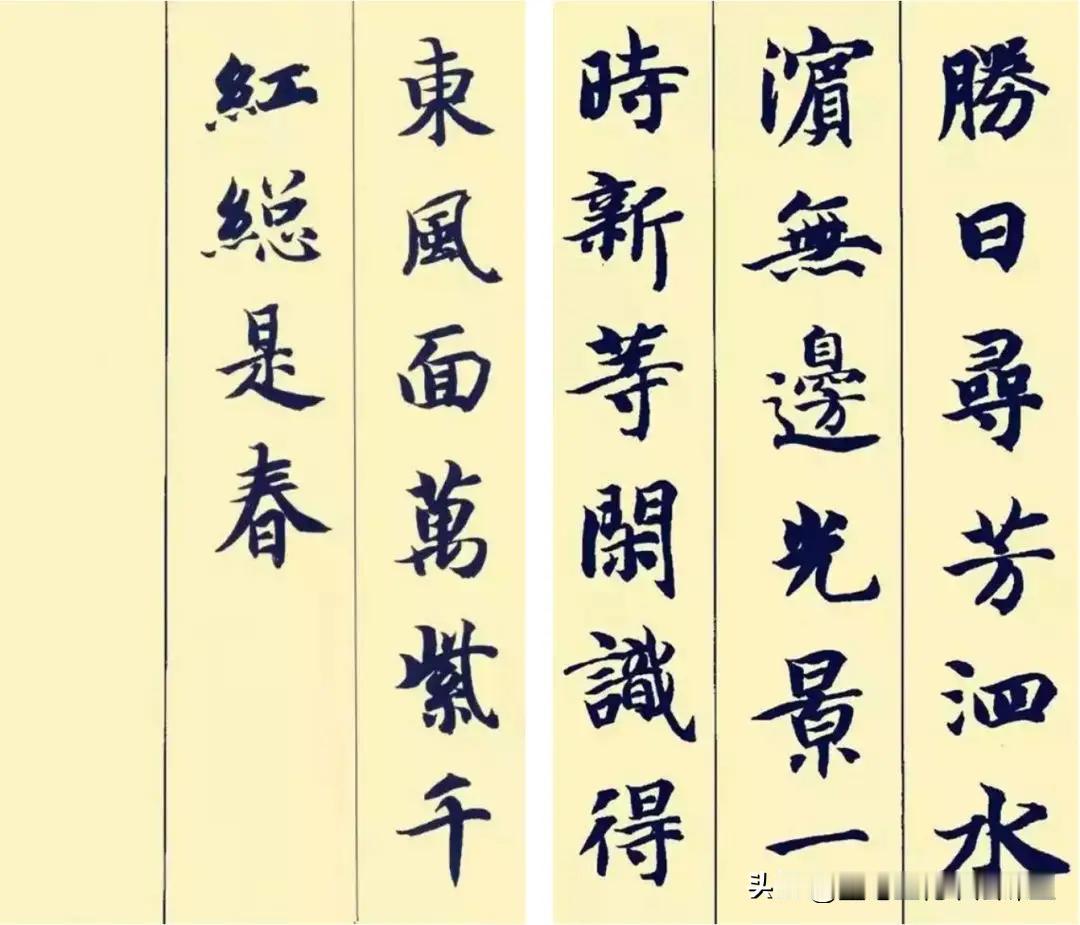 勝日尋芳泗水
濵無邊光景一
時新等閑識得
東風面萬紫千
紅総是春
头